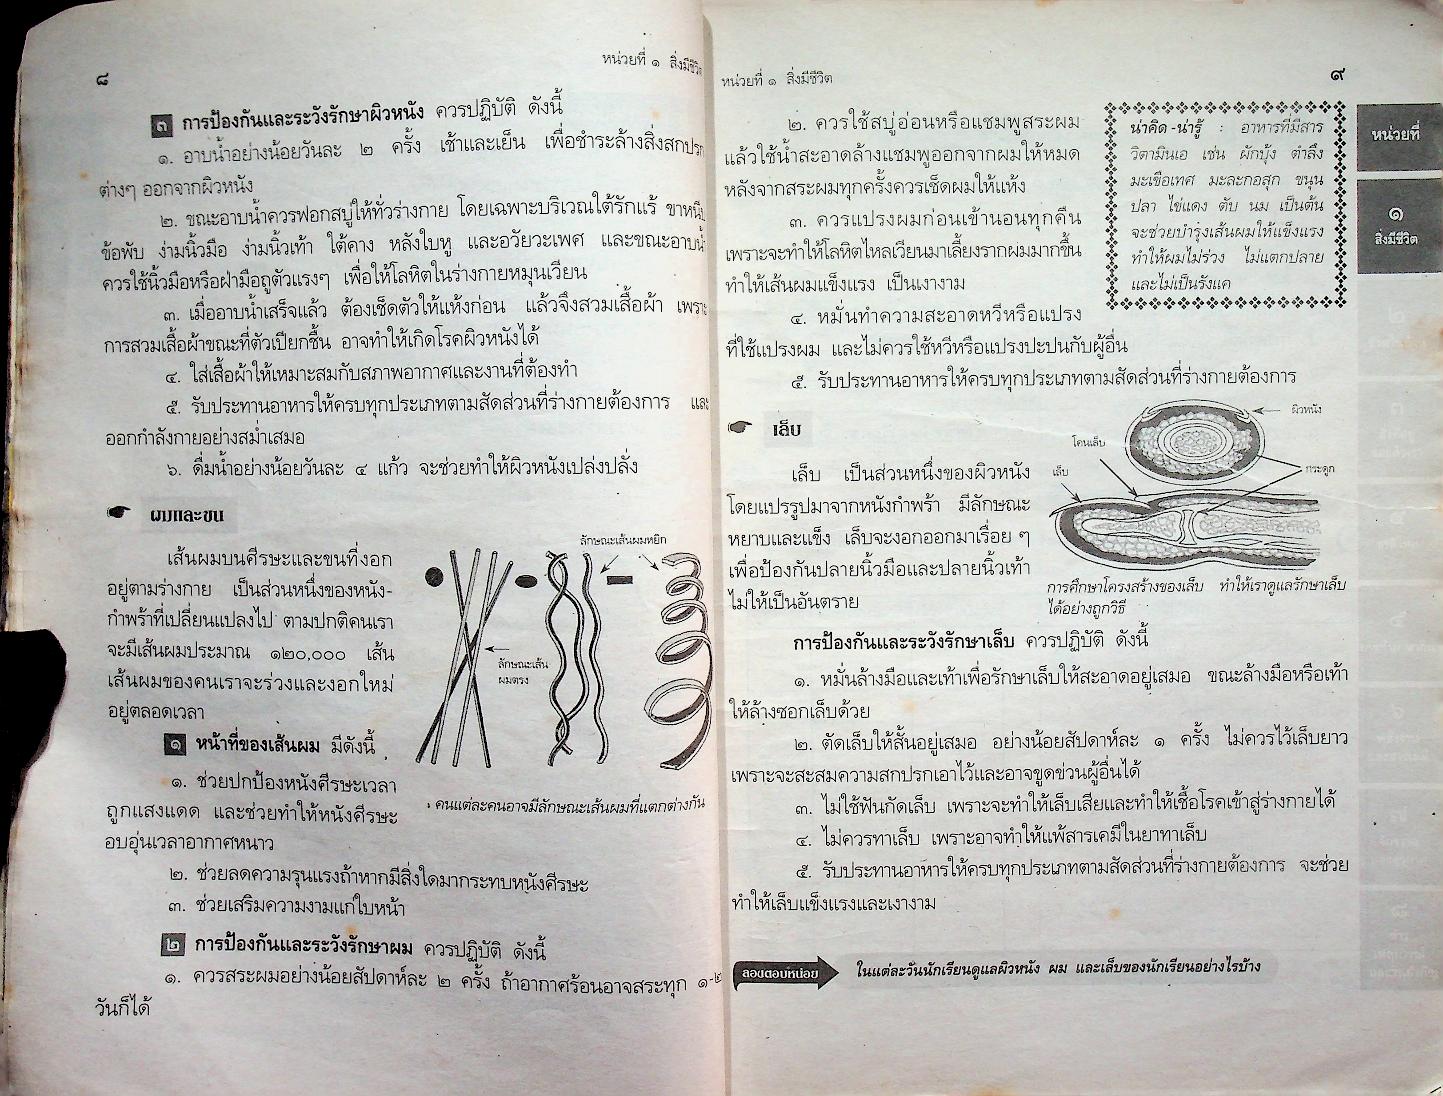 ๘
หน่วยที่ ๑ สิ่งมีชีวิต
๓ การป้องกันและระวังรักษาผิวหนัง ควรปฏิบัติ ดังนี้
๑. อาบน้ำอย่างน้อยวันละ ๒ ครั้ง เช้าและเย็น เพื่อชำระล้างสิ่งสกปรก
ต่างๆ ออกจากผิวหนัง
๒. ขณะอาบน้ำควรฟอกสบู่ให้ทั่วร่างกาย โดยเฉพาะบริเวณใต้รักแร้ ขาหนีบ
ข้อพับ ง่ามนิ้วมือ ง่ามนิ้วเท้า ใต้คาง หลังใบหู และอวัยวะเพศ และขณะอาบน้ำ
ควรใช้นิ้วมือหรือฝ่ามือถูตัวแรงๆ เพื่อให้โลหิตในร่างกายหมุนเวียน
๓. เมื่ออาบน้ำเสร็จแล้ว ต้องเช็ดตัวให้แห้งก่อน แล้วจึงสวมเสื้อผ้า เพราะ
การสวมเสื้อผ้าขณะที่ตัวเปียกชื้น อาจทำให้เกิดโรคผิวหนังได้
๔. ใส่เสื้อผ้าให้เหมาะสมกับสภาพอากาศและงานที่ต้องทำ
๕. รับประทานอาหารให้ครบทุกประเภทตามสัดส่วนที่ร่างกายต้องการ และ
ออกกำลังกายอย่างสม่ำเสมอ
๖. ดื่มน้ำอย่างน้อยวันละ ๔ แก้ว จะช่วยทำให้ผิวหนังเปล่งปลั่ง
ผมและขน
เส้นผมบนศีรษะและขนที่งอก
อยู่ตามร่างกาย เป็นส่วนหนึ่งของหนัง-
กำพร้าที่เปลี่ยนแปลงไป ตามปกติคนเรา
จะมีเส้นผมประมาณ ๑๒๐,๐๐๐ เส้น
เส้นผมของคนเราจะร่วงและงอกใหม่
อยู่ตลอดเวลา
ลักษณะเส้นผมหยิก
ลักษณะเส้น
ผมตรง
คนแต่ละคนอาจมีลักษณะเส้นผมที่แตกต่างกัน
๑ หน้าที่ของเส้นผม มีดังนี้
๑. ช่วยปกป้องหนังศีรษะเวลา
ถูกแสงแดด และช่วยทำให้หนังศีรษะ
อบอุ่นเวลาอากาศหนาว
๒. ช่วยลดความรุนแรงถ้าหากมีสิ่งใดมากระทบหนังศีรษะ
๓. ช่วยเสริมความงามแก่ใบหน้า
๒ การป้องกันและระวังรักษาผม ควรปฏิบัติ ดังนี้
๑. ควรสระผมอย่างน้อยสัปดาห์ละ ๒ ครั้ง ถ้าอากาศร้อนอาจสระทุก ๑-๒
วันก็ได้
หน่วยที่ ๑ สิ่งมีชีวิต
๙
๒. ควรใช้สบู่อ่อนหรือแชมพูสระผม
แล้วใช้น้ำสะอาดล้างแชมพูออกจากผมให้หมด
หลังจากสระผมทุกครั้งควรเช็ดผมให้แห้ง
๓. ควรแปรงผมก่อนเข้านอนทุกคืน
เพราะจะทำให้โลหิตไหลเวียนมาเลี้ยงรากผมมากขึ้น
ทำให้เส้นผมแข็งแรง เป็นเงางาม
๔. หมั่นทำความสะอาดหวีหรือแปรง
ที่ใช้แปรงผม และไม่ควรใช้หวีหรือแปรงปะปนกับผู้อื่น
๕. รับประทานอาหารให้ครบทุกประเภทตามสัดส่วนที่ร่างกายต้องการ
น่าคิด-น่ารู้ : อาหารที่มีสาร
วิตามินเอ เช่น ผักบุ้ง ตำลึง
มะเขือเทศ มะละกอสุก ขนุน
ปลา ไข่แดง ตับ นม เป็นต้น
จะช่วยบำรุงเส้นผมให้แข็งแรง
ทำให้ผมไม่ร่วง ไม่แตกปลาย
และไม่เป็นรังแค
หน่วยที่
๑
สิ่งมีชีวิต
เล็บ
เล็บ เป็นส่วนหนึ่งของผิวหนัง
โดยแปรรูปมาจากหนังกำพร้า มีลักษณะ
หยาบและแข็ง เล็บจะงอกออกมาเรื่อย ๆ
เพื่อป้องกันปลายนิ้วมือและปลายนิ้วเท้า
ไม่ให้เป็นอันตราย
ผิวหนัง
โคนเล็บ
เล็บ
กระดูก
การศึกษาโครงสร้างของเล็บ ทำให้เราดูแลรักษาเล็บ
ได้อย่างถูกวิธี
การป้องกันและระวังรักษาเล็บ ควรปฏิบัติ ดังนี้
๑. หมั่นล้างมือและเท้าเพื่อรักษาเล็บให้สะอาดอยู่เสมอ ขณะล้างมือหรือเท้า
ให้ล้างซอกเล็บด้วย
๒. ตัดเล็บให้สั้นอยู่เสมอ อย่างน้อยสัปดาห์ละ ๑ ครั้ง ไม่ควรไว้เล็บยาว
เพราะจะสะสมความสกปรกเอาไว้และอาจขูดข่วนผู้อื่นได้
๓. ไม่ใช้ฟันกัดเล็บ เพราะจะทำให้เล็บเสียและทำให้เชื้อโรคเข้าสู่ร่างกายได้
๔. ไม่ควรทาเล็บ เพราะอาจทำให้แพ้สารเคมีในยาทาเล็บ
๕. รับประทานอาหารให้ครบทุกประเภทตามสัดส่วนที่ร่างกายต้องการ จะช่วย
ทำให้เล็บแข็งแรงและเงางาม
ลองตอบหน่อย ในแต่ละวันนักเรียนดูแลผิวหนัง ผม และเล็บของนักเรียนอย่างไรบ้าง